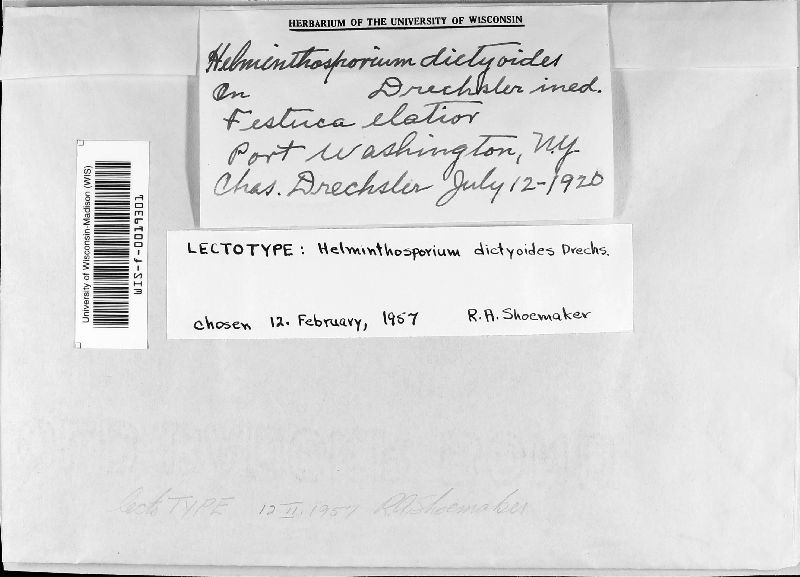 HERBARIUM OF THE UNIVERSITY OF WISCONSIN
Helminthosporium dictyoides
On Drechsler ined.
Festuca elatior
Port Washington, N.Y.
Chas. Drechsler July 12-1920
University of Wisconsin-Madison (WIS)
WIS-f-0019301
LECTOTYPE: Helminthosporium dictyoides Drechs.
chosen 12. February, 1957 R.A. Shoemaker
lectoTYPE 12 II 1957 RAShoemaker